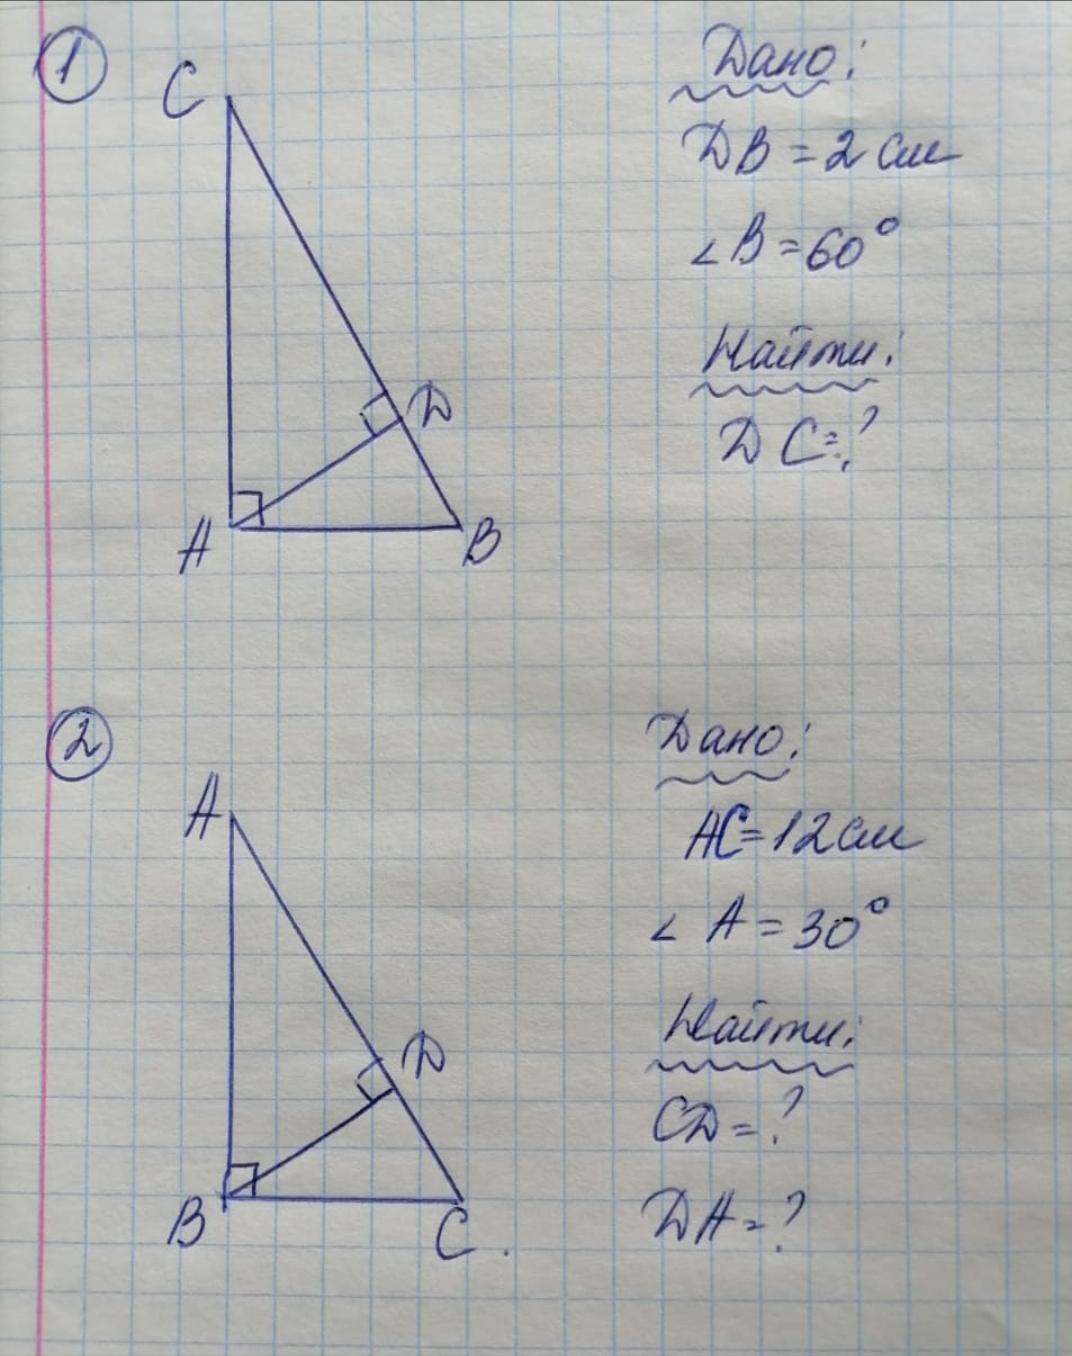 1
C
D
A
B
Дано:
DB = 2 см
∠B = 60°
Найти:
DC = ?
2
A
D
B
C.
Дано:
AC = 12 см
∠A = 30°
Найти:
CD = ?
DA = ?